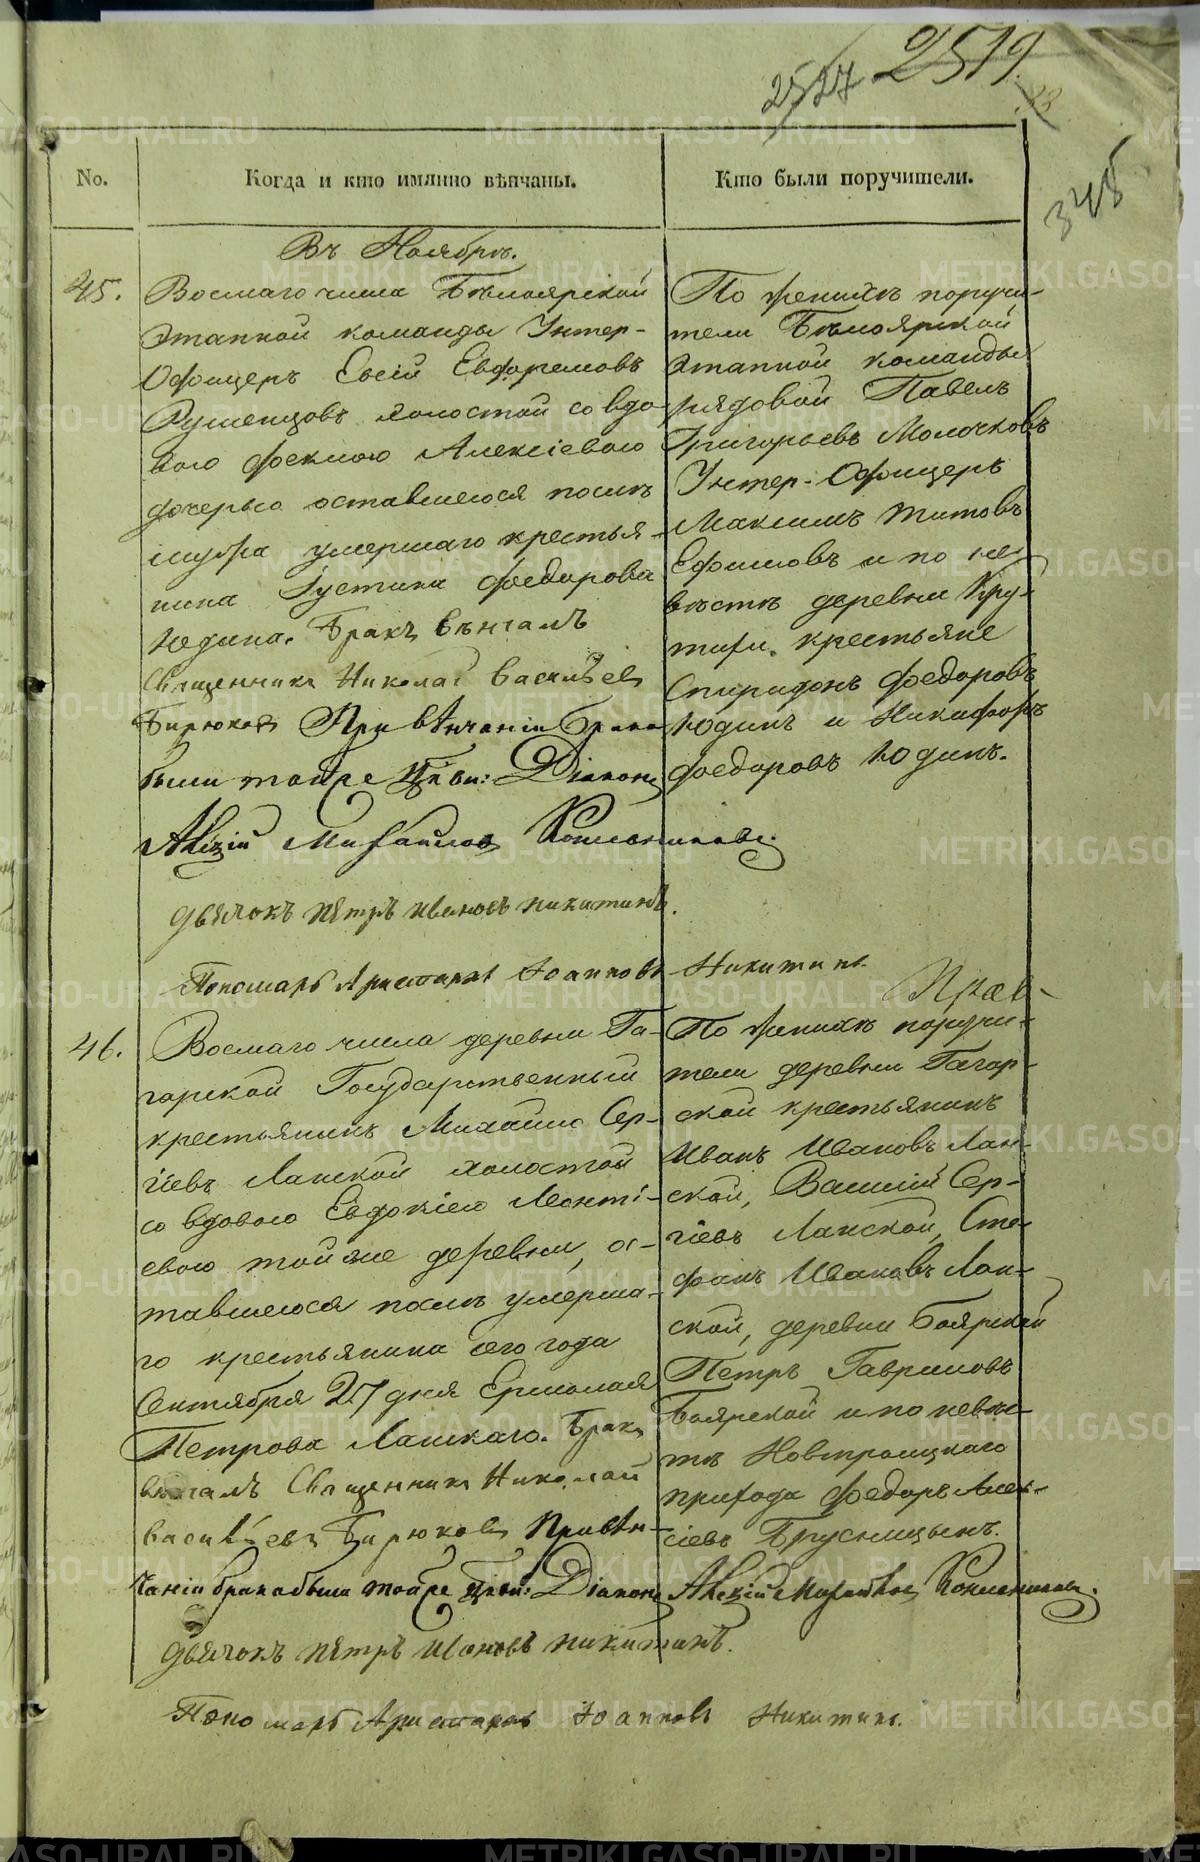 2527 2519
348
No.
Когда и кто имянно вѣнчаны.
Кто были поручители.
Въ Ноябрѣ.
45.
Восмаго числа Бѣлоярской
Этапной команды Унтер-
Офицеръ Евсій Евфремовъ
Румянцовъ холостой со вдо-
вою Феклою Алексіевою
дочерью оставшеюся послѣ
мужа умершаго крестья-
нина Густина Федорова
Юдина. Бракъ вѣнчалъ
Священникъ Николай Васильевъ
Бирюковъ При вѣнчаніи брака
были тойже Церкви: Діаконъ
Алексій Михайловъ Кошельниковъ.
Дьячокъ Петръ Ивановъ Никитинъ.
Пономарь Аристархъ Іоанновъ Никитинъ.
По женихѣ поручи-
тели Бѣлоярской
Этапной команды
рядовой Павелъ
Григорьевъ Молочковъ
Унтер-Офицеръ
Максимъ Титовъ
Ефимовъ и по не-
вѣстѣ деревни Кру-
тихи крестьяне
Спиридонъ Федоровъ
Юдинъ и Никифоръ
Федоровъ Юдинъ.
46.
Восмаго числа деревни Га-
гарской Государственный
крестьянинъ Михайло Сер-
гіевъ Ланской холостой
со вдовою Евдокіею Леонті-
евою тойже деревни, ос-
тавшеюся послѣ умерша-
го крестьянина сего года
Сентября 27 дня Ермолая
Петрова Ланскаго. Бракъ
вѣнчалъ Священникъ Николай
Васильевъ Бирюковъ При вѣн-
чаніи брака были тойже Церкви: Діаконъ Алексій Михайловъ Кошельниковъ.
Дьячокъ Петръ Ивановъ Никитинъ.
Пономарь Аристархъ Іоанновъ Никитинъ.
По женихѣ поручи-
тели деревни Гагар-
ской крестьянинъ
Иванъ Ивановъ Лан-
ской, Василій Сер-
гіевъ Ланской, Сте-
фанъ Ивановъ Лан-
ской, деревни Боярской
Петръ Гавриловъ
Боярской и по невѣс-
тѣ Новотроицкаго
прихода Федоръ Алек-
сіевъ Брусницынъ.
METRIKI.GASO-URAL.RU